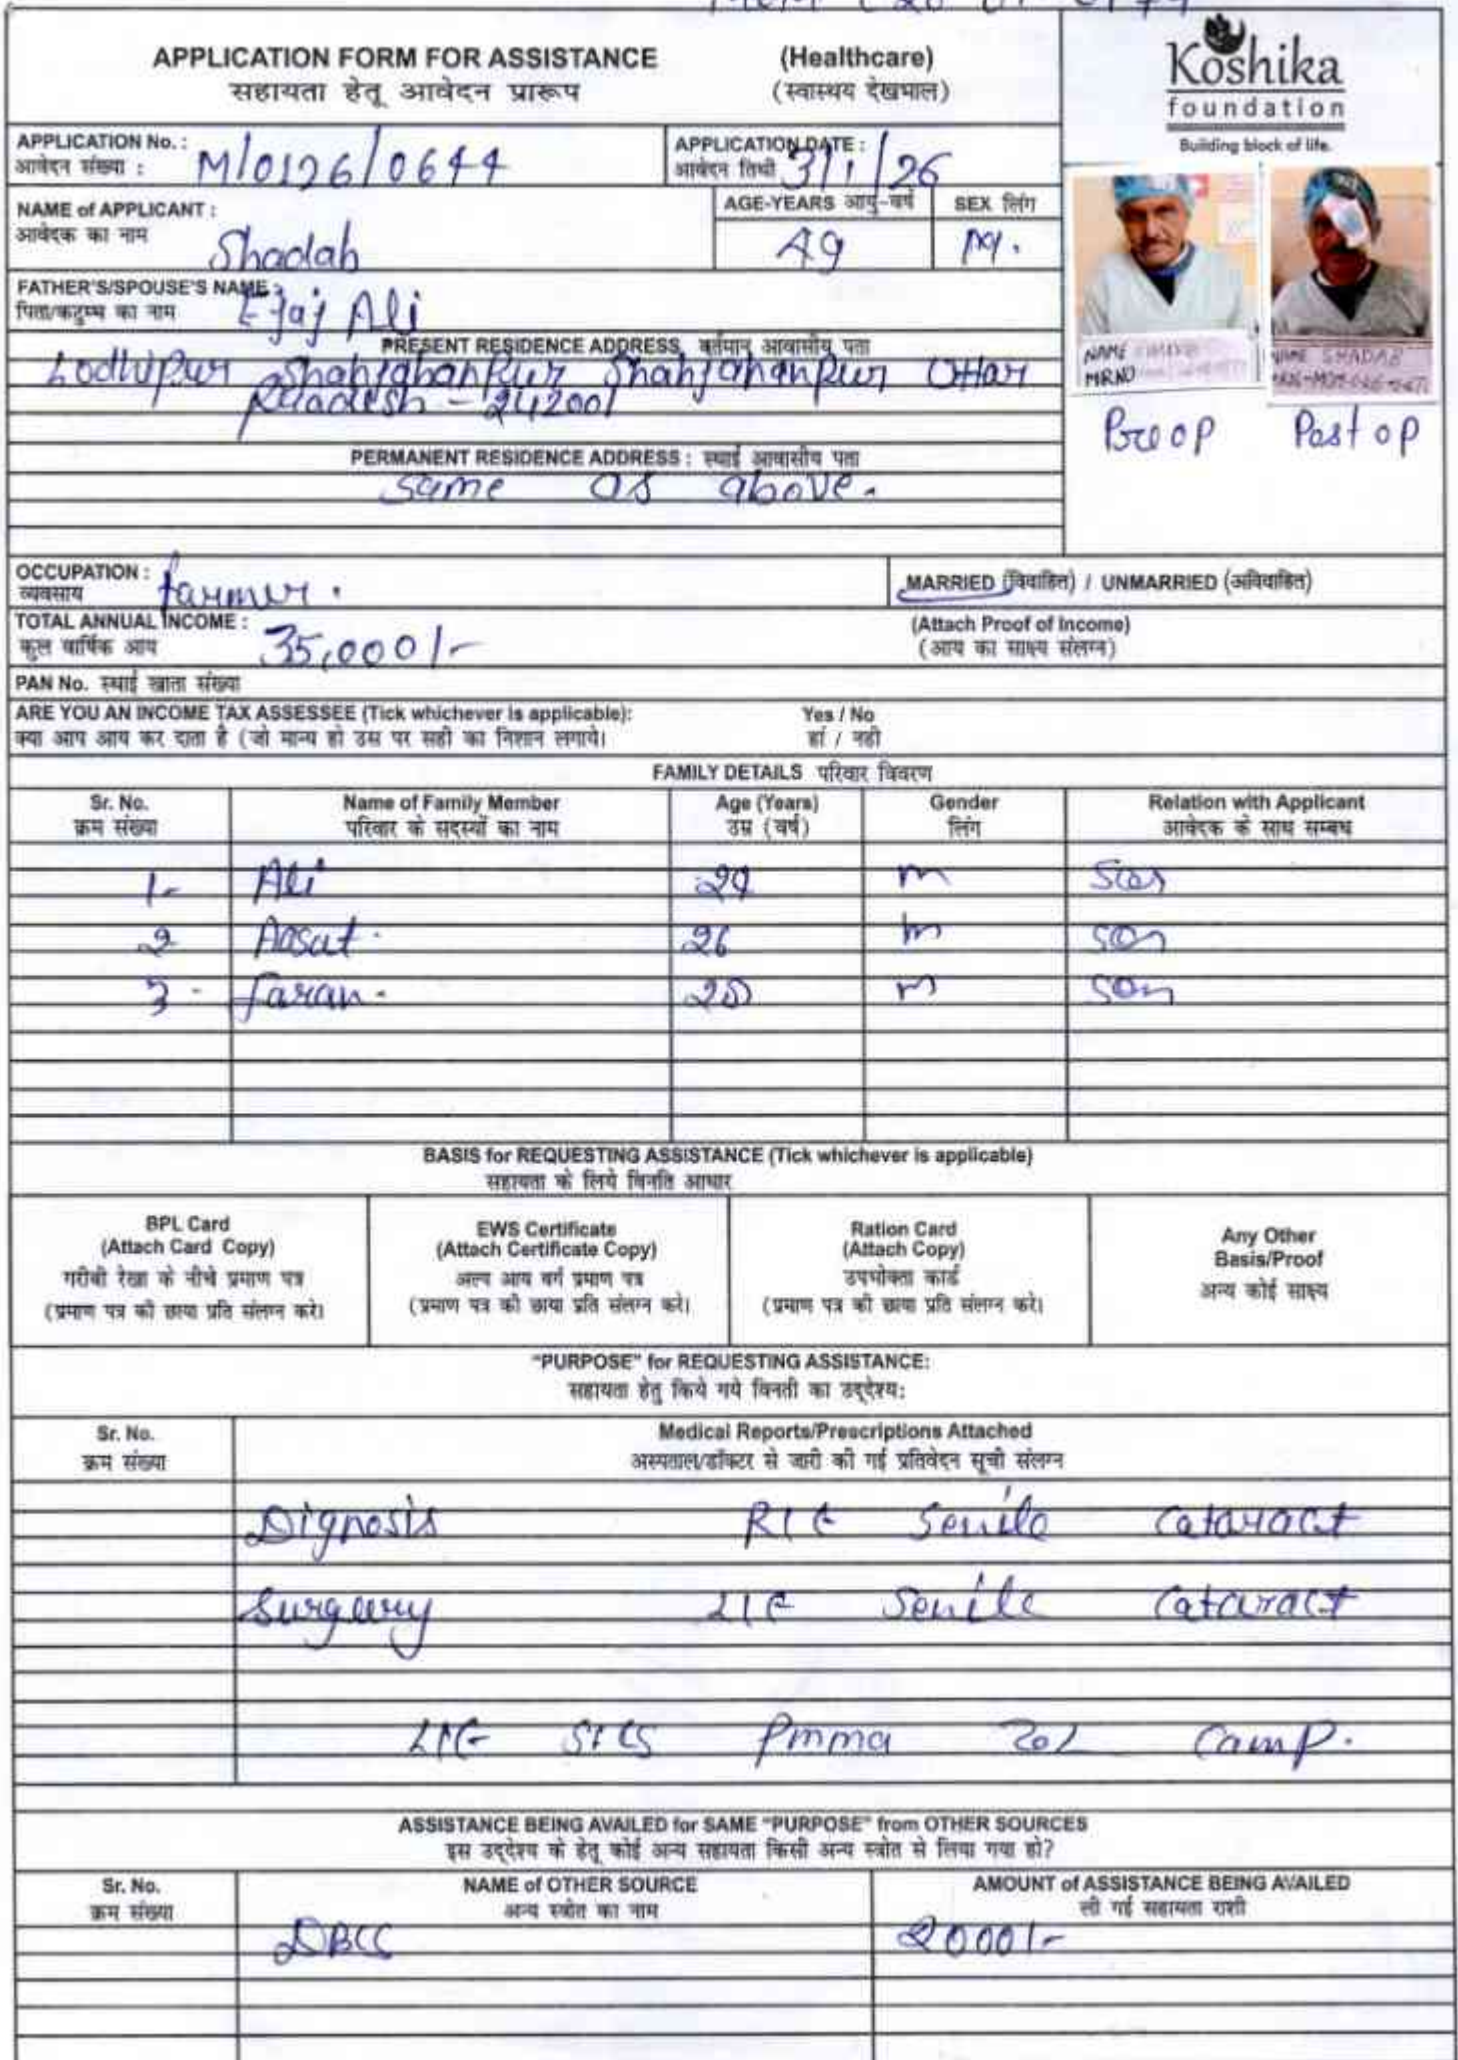 APPLICATION FORM FOR ASSISTANCE (Healthcare)
सहायता हेतू आवेदन प्रारूप (स्वास्थय देखभाल)
Koshika
foundation
Building block of life.
APPLICATION No. : M/0126/0644
आवेदन संख्या :
APPLICATION DATE : 31/1/26
आवेदन तिथी
NAME of APPLICANT : Shadab
आवेदक का नाम
AGE-YEARS आयु-वर्ष 49
SEX लिंग M.
FATHER'S/SPOUSE'S NAME : Ejaj Ali
पिता/कटुम्ब का नाम
PRESENT RESIDENCE ADDRESS वर्तमान आवासीय पता
Lodhipur Shahjahanpur Shahjahanpur Uttar
Pradesh - 242001
NAME
MRNO
NAME SHADAB
Pre op Post op
PERMANENT RESIDENCE ADDRESS : स्थाई आवासीय पता
same as above.
OCCUPATION : farmer.
व्यवसाय
MARRIED (विवाहित) / UNMARRIED (अविवाहित)
TOTAL ANNUAL INCOME : 35,000/-
कुल वार्षिक आय
(Attach Proof of Income)
(आय का साक्ष्य संलग्न)
PAN No. स्थाई खाता संख्या
ARE YOU AN INCOME TAX ASSESSEE (Tick whichever is applicable): Yes / No
क्या आप आय कर दाता है (जो मान्य हो उस पर सही का निशान लगाये। हां / नही
FAMILY DETAILS परिवार विवरण
Sr. No. Name of Family Member Age (Years) Gender Relation with Applicant
क्रम संख्या परिवार के सदस्यों का नाम उम्र (वर्ष) लिंग आवेदक के साथ सम्बध
1- Ali 29 m son
2 Aasat. 26 m son
3 - faran. 20 m son
BASIS for REQUESTING ASSISTANCE (Tick whichever is applicable)
सहायता के लिये विनति आधार
BPL Card
(Attach Card Copy)
गरीबी रेखा के नीचे प्रमाण पत्र
(प्रमाण पत्र की छाया प्रति संलग्न करे।
EWS Certificate
(Attach Certificate Copy)
अल्प आय वर्ग प्रमाण पत्र
(प्रमाण पत्र की छाया प्रति संलग्न करे।
Ration Card
(Attach Copy)
उपभोक्ता कार्ड
(प्रमाण पत्र की छाया प्रति संलग्न करे।
Any Other
Basis/Proof
अन्य कोई साक्ष्य
"PURPOSE" for REQUESTING ASSISTANCE:
सहायता हेतु किये गये विनती का उद्देश्य:
Sr. No. Medical Reports/Prescriptions Attached
क्रम संख्या अस्पताल/डॉक्टर से जारी की गई प्रतिवेदन सूची संलग्न
Dignosis R/E Senile Cataract
Surgery L/E Senile Cataract
L/E SICS Pmma IOL Camp.
ASSISTANCE BEING AVAILED for SAME "PURPOSE" from OTHER SOURCES
इस उद्देश्य के हेतू कोई अन्य सहायता किसी अन्य स्त्रोत से लिया गया हो?
Sr. No. NAME of OTHER SOURCE AMOUNT of ASSISTANCE BEING AVAILED
क्रम संख्या अन्य स्त्रोत का नाम ली गई सहायता राशी
DBCS 2000/-